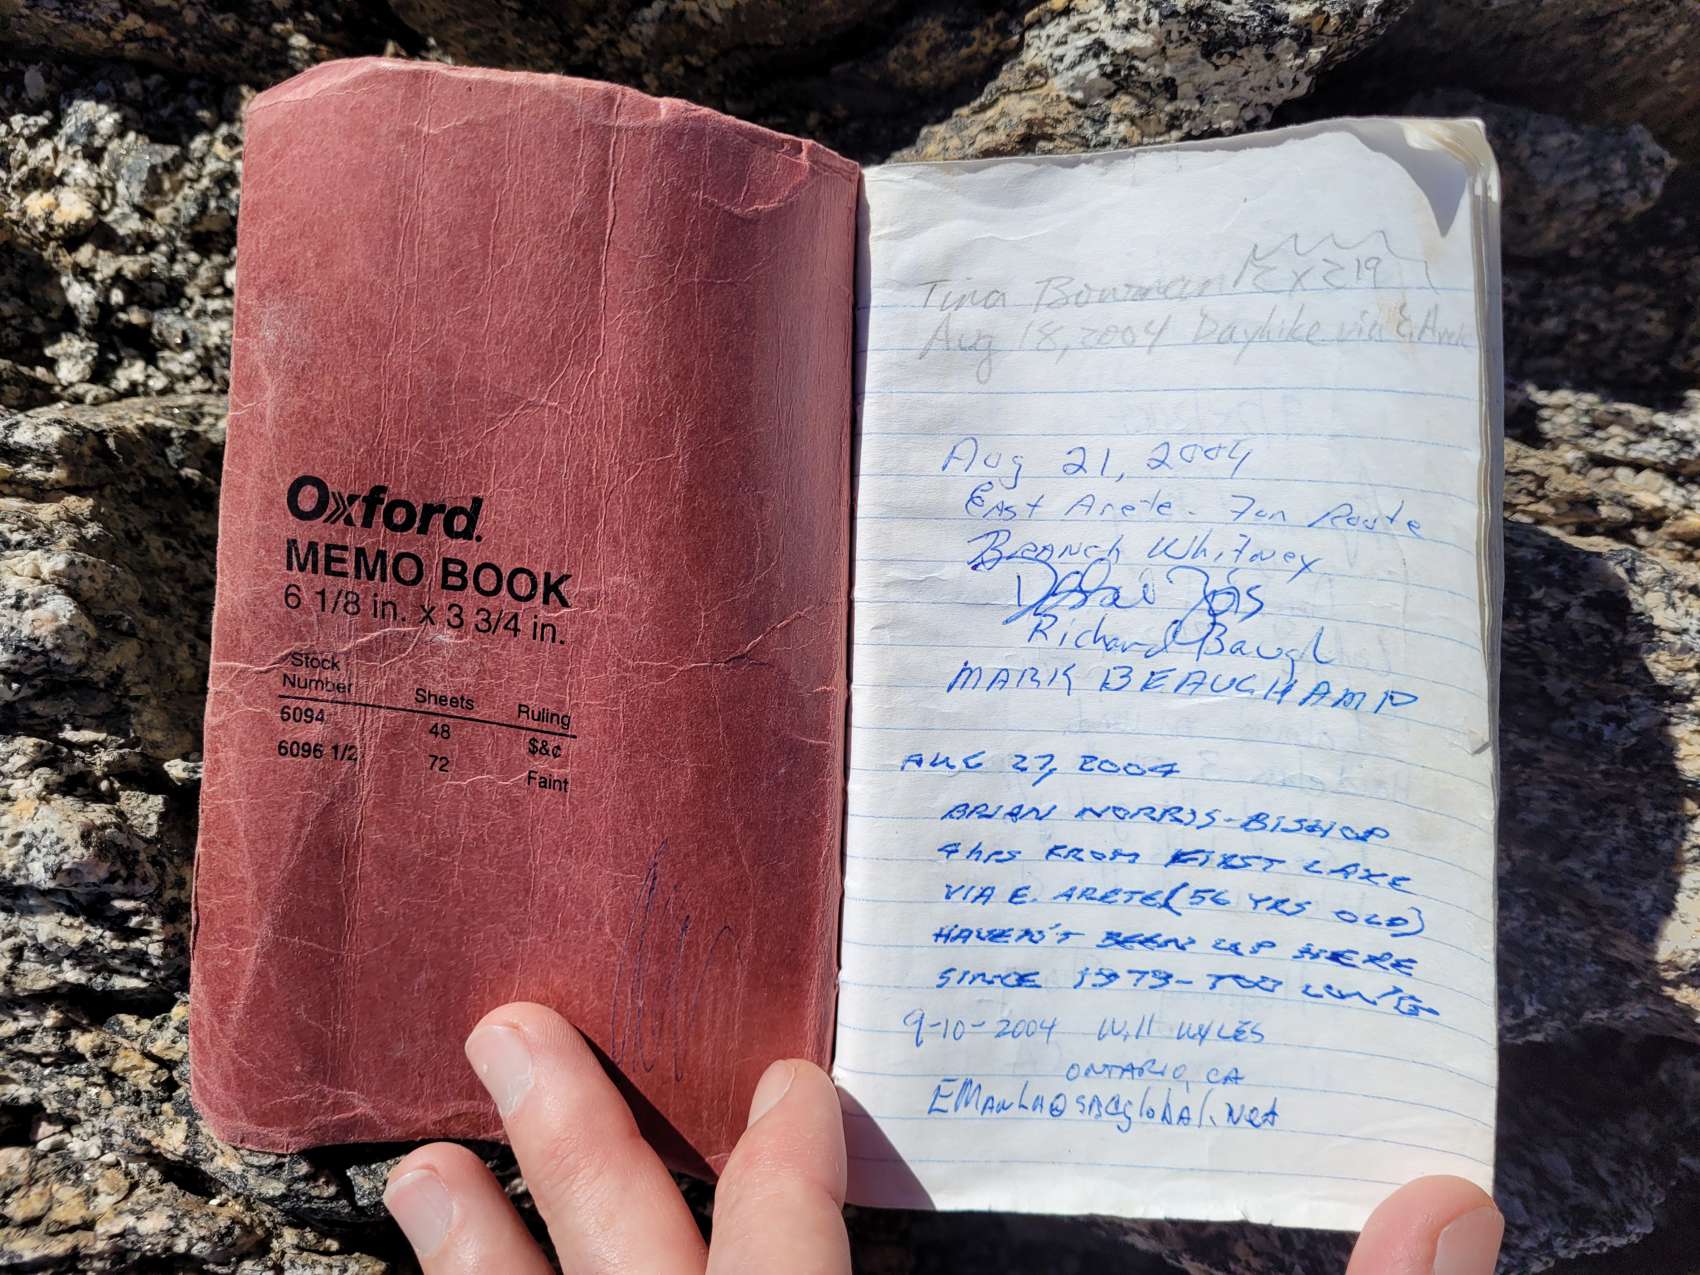 Oxford.
MEMO BOOK
6 1/8 in. x 3 3/4 in.
Stock Number Sheets Ruling
6094 48 $&¢
6096 1/2 72 Faint
Tina Bowman
Aug 18, 2004 Dayhike via E. Arete
Aug 21, 2004
East Arete - Fun Route
Branch Whitney
Richard Baugh
MARK BEAUCHAMP
AUG 27, 2004
BRIAN NORRIS - BISHOP
4 hrs FROM FIRST LAKE
VIA E. ARETE (56 YRS OLD)
HAVEN'T BEEN UP HERE
SINCE 1979 - TOO LONG
9-10-2004 Will WYLES
ONTARIO, CA